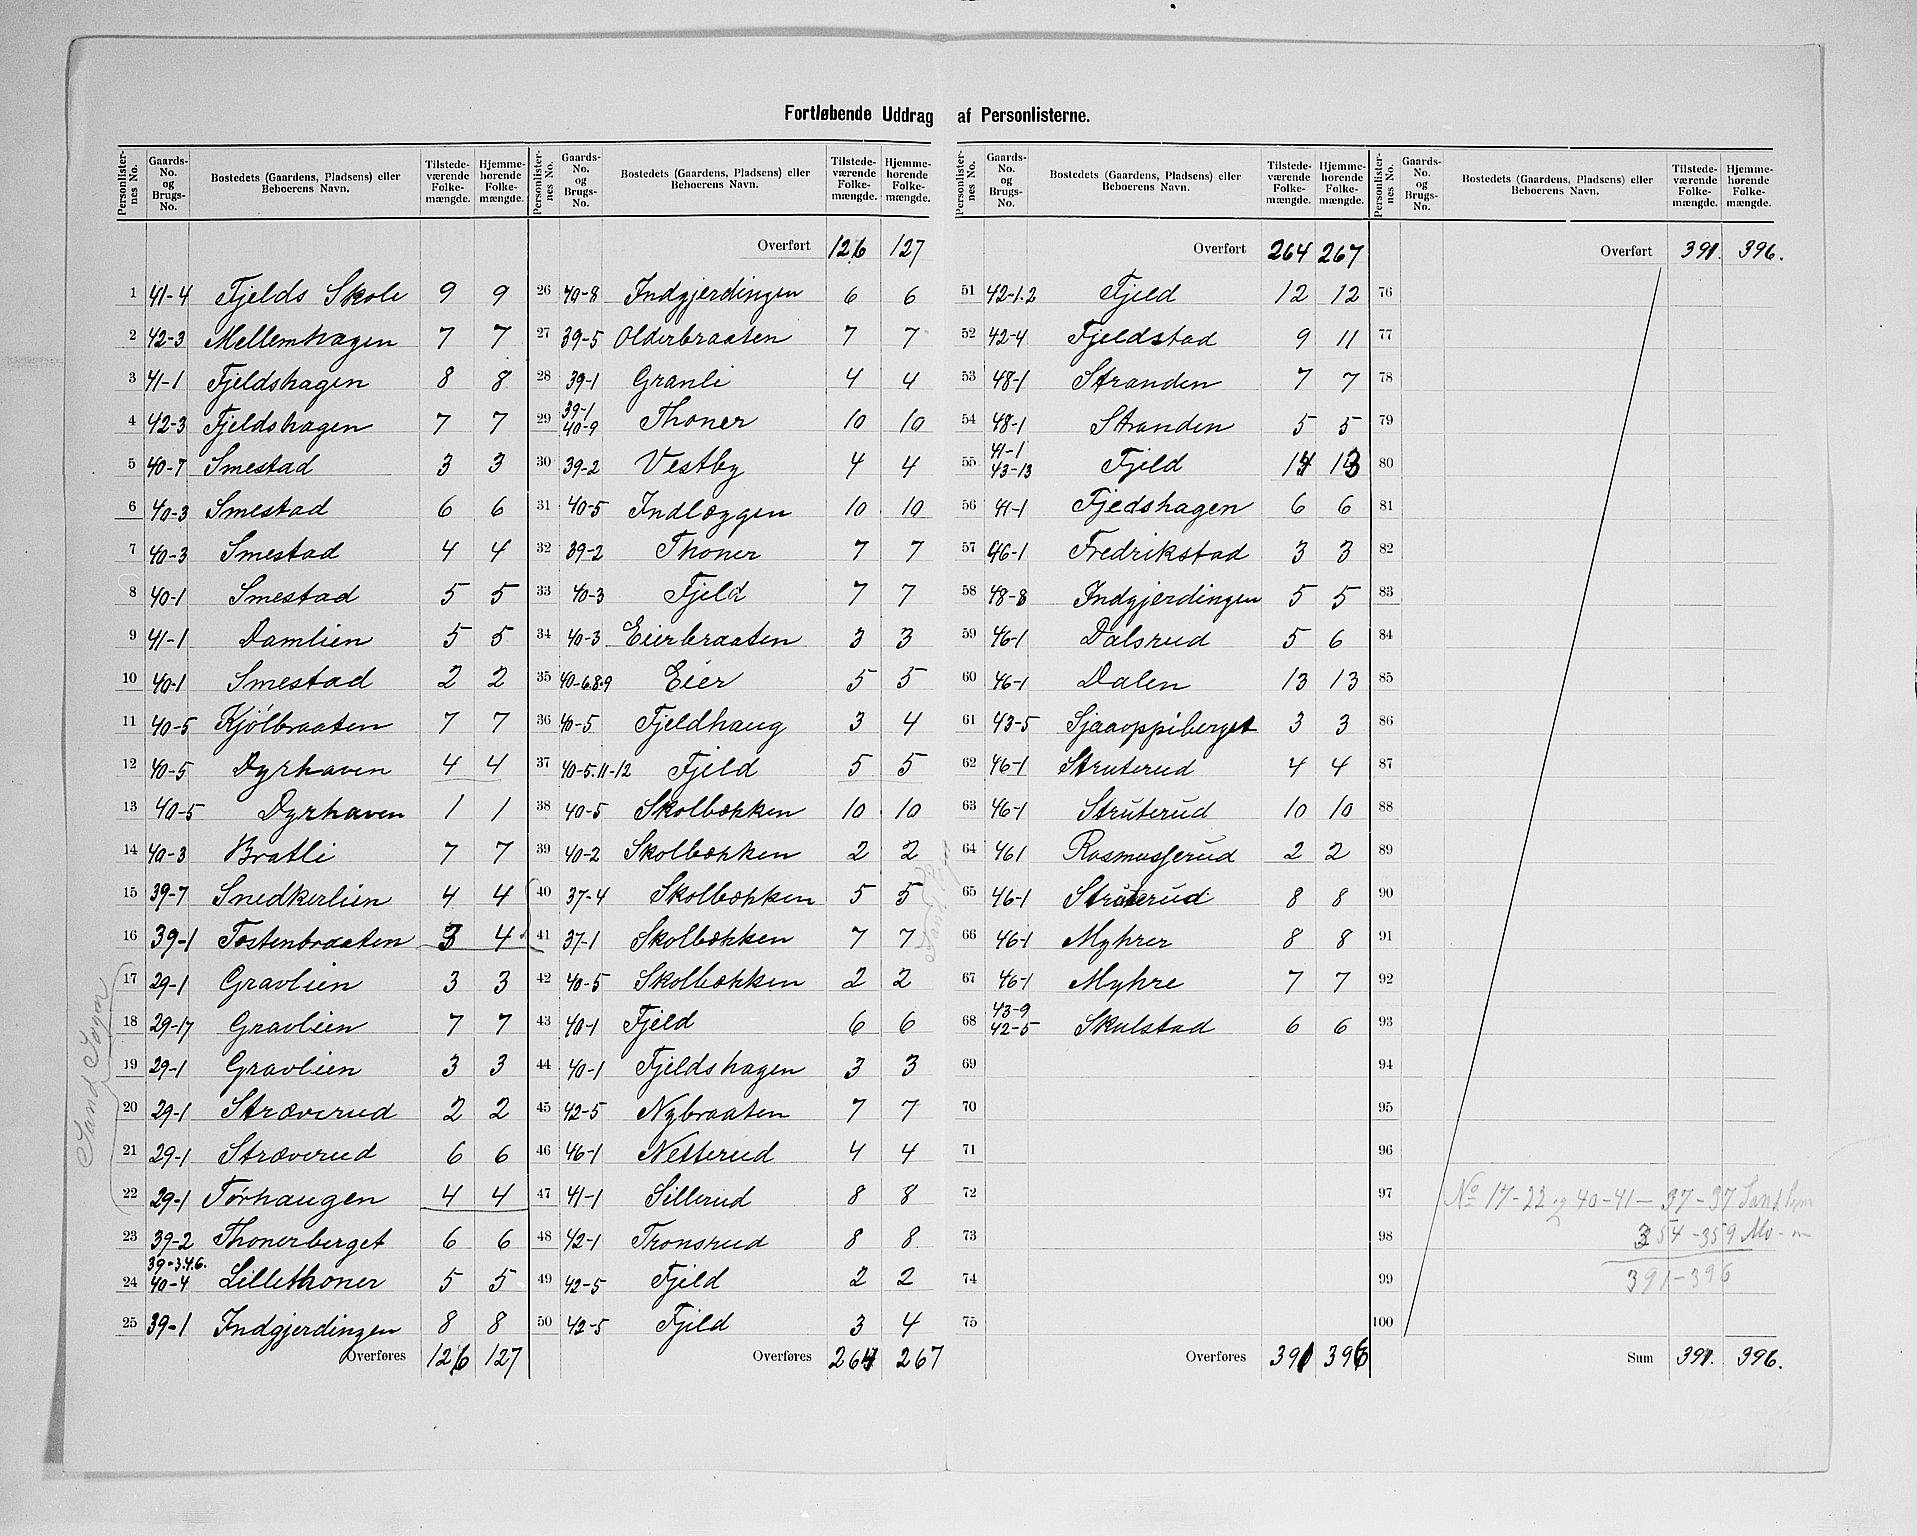 Fortløbende Uddrag af Personlisterne.
Personlisternes No. Gaards-No. og Brugs-No. Bostedets (Gaardens, Pladsens) eller Beboerens Navn. Tilstedeværende Folkemængde. Hjemmehørende Folkemængde.
1 41-4 Fjelds Skole 9 9
2 42-3 Mellemhagen 7 7
3 41-1 Fjeldshagen 8 8
4 42-3 Fjeldshagen 7 7
5 40-7 Smestad 3 3
6 40-3 Smestad 6 6
7 40-3 Smestad 4 4
8 40-1 Smestad 5 5
9 41-1 Damlien 5 5
10 40-1 Smestad 2 2
11 40-5 Kjólbraaten 7 7
12 40-5 Dyrhaven 4 4
13 40-5 Dyrhaven 1 1
14 40-3 Bratli 7 7
15 39-7 Snedkerlien 4 4
16 39-1 Tostenbraaten 3 4
17 29-1 Gravlien 3 3
18 29-17 Gravlien 7 7
19 29-1 Gravlien 3 3
20 29-1 Stræverud 2 2
21 29-1 Stræverud 6 6
22 29-1 Tórhaugen 4 4
Sand Sogn
23 39-2 Thonerberget 6 6
24 39-3.4.6. 40-4 Lillethoner 5 5
25 39-1 Indgjerdingen 8 8
Overføres 126 127
Personlisternes No. Gaards-No. og Brugs-No. Bostedets (Gaardens, Pladsens) eller Beboerens Navn. Tilstedeværende Folkemængde. Hjemmehørende Folkemængde.
Overført 126 127
26 40-8 Indgjerdingen 6 6
27 39-5 Olderbraaten 7 7
28 39-1 Granli 4 4
29 39-1 40-9 Thoner 10 10
30 39-2 Vestby 4 4
31 40-5 Indlæggen 10 10
32 39-2 Thoner 7 7
33 40-3 Fjeld 7 7
34 40-3 Eierbraaten 3 3
35 40-6.8.9 Eier 5 5
36 40-5 Fjeldhaug 3 4
37 40-5.11-12 Fjeld 5 5
38 40-5 Skolbækken 10 10
39 40-2 Skolbækken 2 2
40 37-4 Skolbækken 5 5
41 37-1 Skolbækken 7 7
42 40-5 Skolbækken 2 2
43 40-1 Fjeld 6 6
44 40-1 Fjeldshagen 3 3
45 42-5 Nybraaten 7 7
46 46-1 Netterud 4 4
47 41-1 Sillerud 8 8
48 42-1 Tronsrud 8 8
49 42-5 Fjeld 2 2
50 42-5 Fjeld 3 4
Overføres 264 267
Personlisternes No. Gaards-No. og Brugs-No. Bostedets (Gaardens, Pladsens) eller Beboerens Navn. Tilstedeværende Folkemængde. Hjemmehørende Folkemængde.
Overført 264 267
51 42-1.2 Fjeld 12 12
52 42-4 Fjeldstad 9 11
53 48-1 Stranden 7 7
54 48-1 Stranden 5 5
55 41-1 43-13 Fjeld 14 13
56 41-1 Fjedshagen 6 6
57 46-1 Fredrikstad 3 3
58 48-8 Indgjerdingen 5 5
59 46-1 Dalsrud 5 6
60 46-1 Dalen 13 13
61 43-5 Sjaaoppiberget 3 3
62 46-1 Struterud 4 4
63 46-1 Struterud 10 10
64 461 Rasmusserud 2 2
65 46-1 Struterud 8 8
66 46-1 Myhrer 8 8
67 46-1 Myhre 7 7
68 43-9 42-5 Skulstad 6 6
69
70
71
72
73
74
75
Overføres 391 396
Personlisternes No. Gaards-No. og Brugs-No. Bostedets (Gaardens, Pladsens) eller Beboerens Navn. Tilstedeværende Folkemængde. Hjemmehørende Folkemængde.
Overført 391. 396.
76
77
78
79
80
81
82
83
84
85
86
87
88
89
90
91
92
93
94
95
96
97 No 17-22 og 40-41 – 37-37 Sand
98 354-359 Mo
99 391-396
100
Sum 391. 396.